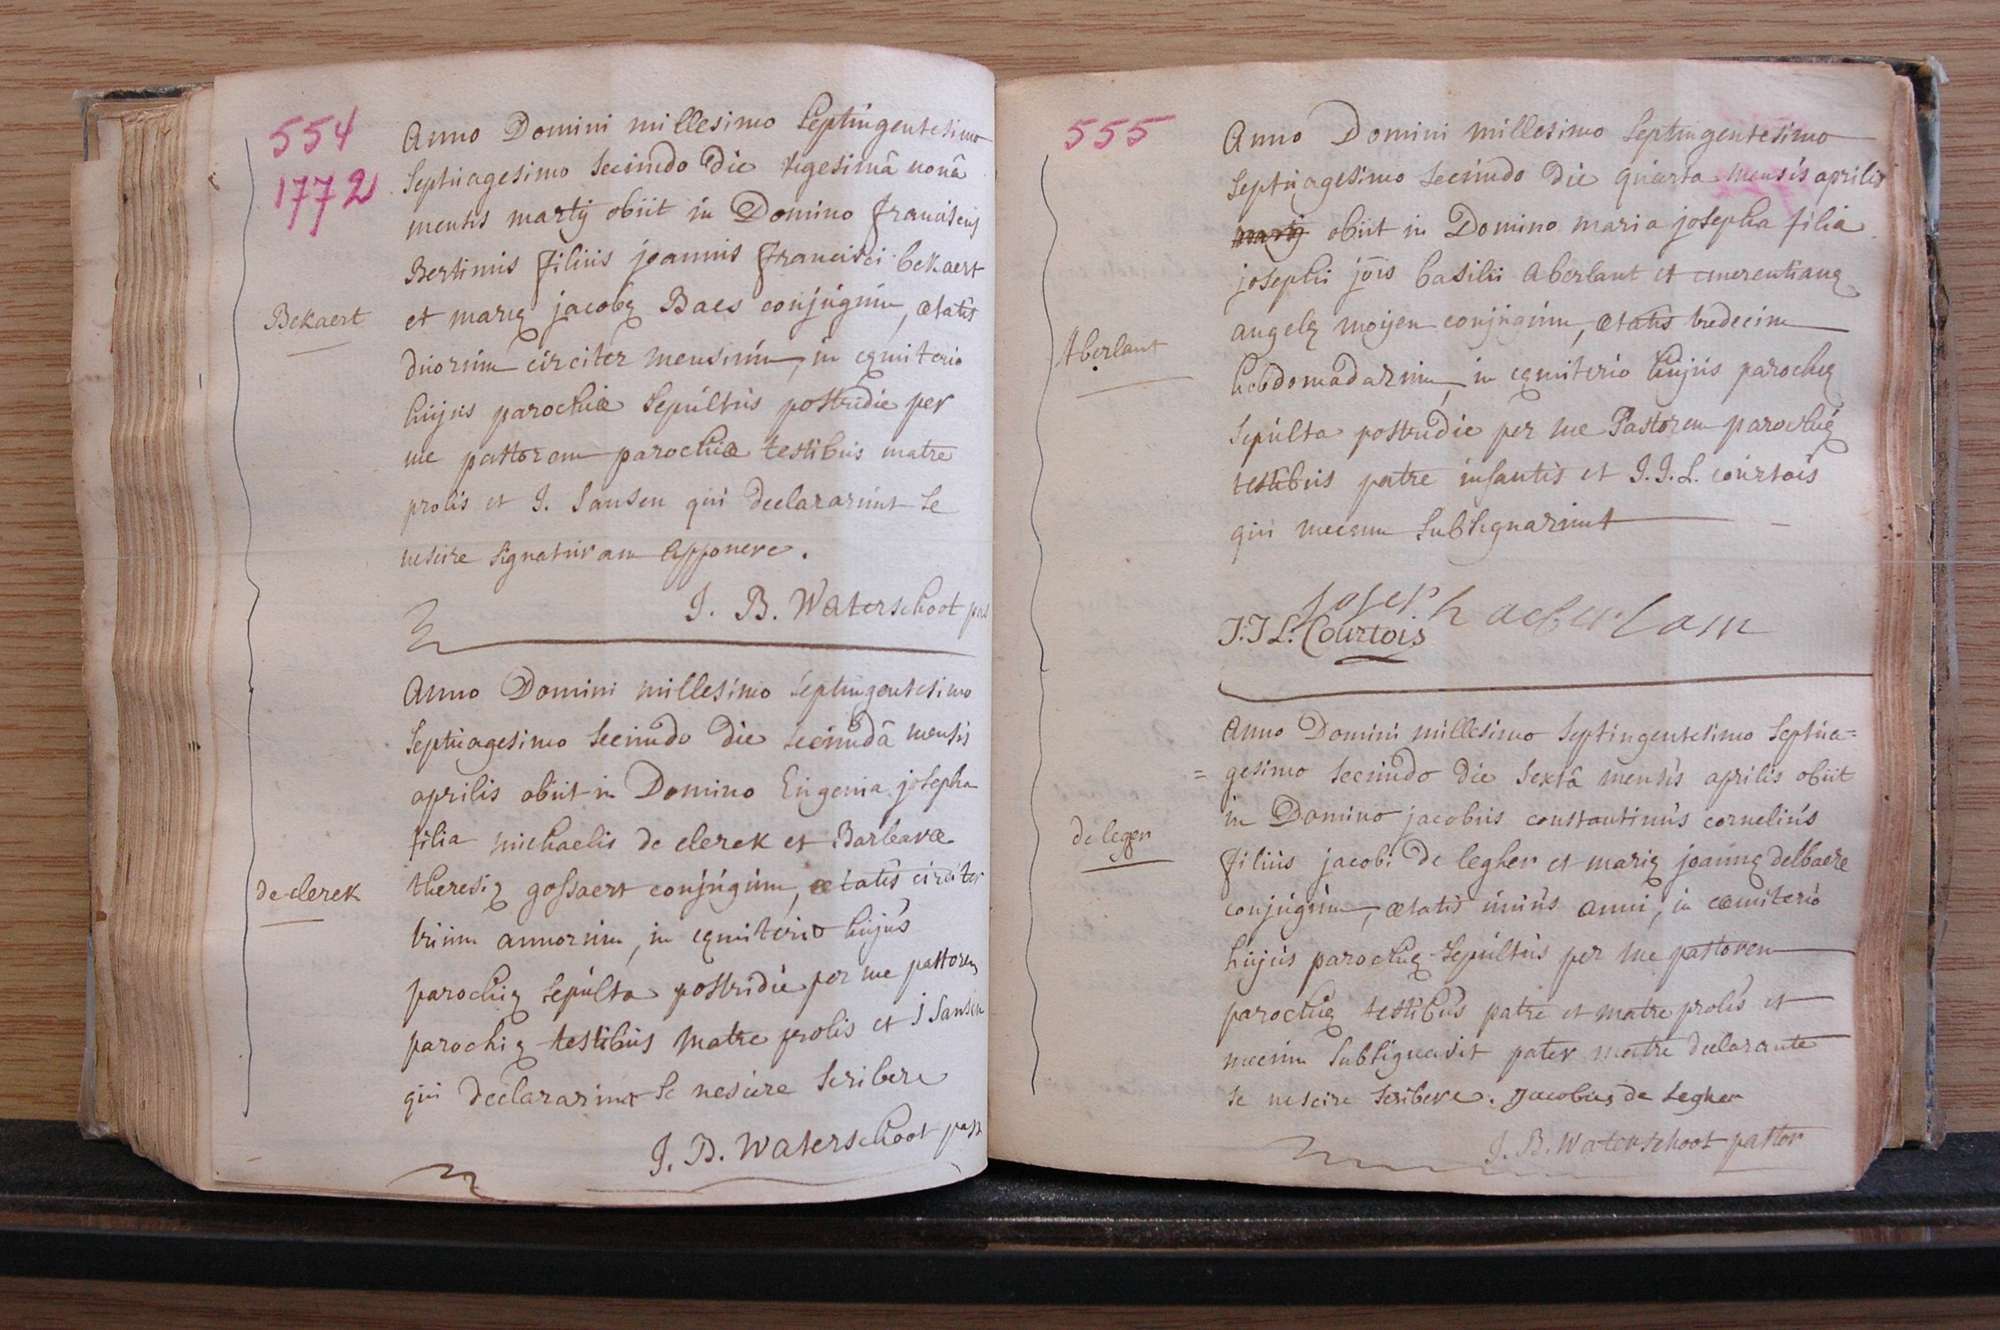 554
1772
Anno Domini millesimo Septingentesimo
Septuagesimo secundo die vigesimâ nonâ
mensis martij obiit in Domino franciscus
Bertinus filius joannis francisci bekaert
et marię jacobę Baes conjugum, ætatis
duorum circiter mensium, in cęmiterio
hujus parochiæ sepultus postridie per
me pastorem parochiæ testibus matre
prolis et J. Jansen qui declararunt se
nescire signaturam apponere.
J. B. Waterschoot pas
Bekaert
Anno Domini millesimo septingentesimo
septuagesimo secundo die secundâ mensis
aprilis obiit in Domino Eugenia josepha
filia michaelis de clerek et Barbaræ
theresię gossaert conjugum, ætatis circiter
trium annorum, in cęmiterio hujus
parochię sepulta postridie per me pastorem
parochię testibus matre prolis et J Jansen
qui declararunt se nescire scribere
J. B. Waterschoot past
de clerek
555
Anno Domini millesimo septingentesimo
septuagesimo secundo die quarta mensis aprilis
martij obiit in Domino maria josepha filia
josephi jois basilii Aberlant et emerentianę
angelę moijen conjugum, ætatis tredecim
hebdomadarum, in cęmiterio hujus parochię
sepulta postridie per me Pastorem parochię
testibus patre infantis et J. J. L. courtois
qui mecum subsignarunt
Joseph aeberlam
J. J L. Courtois
Aberlant
Anno Domini millesimo septingentesimo septua=
= gesimo secundo die sextâ mensis aprilis obiit
in Domino jacobus constantinus cornelius
filius jacobi de legher et marię joannę delbaere
conjugum, ætatis unius anni, in cæmiterio
hujus parochię sepultus per me pastorem
parochię testibus patre et matre prolis et
mecum subsignavit pater matre declarante
se nescire scribere. Jacobus de Legher
J. B. Waterschoot pastor
de leger